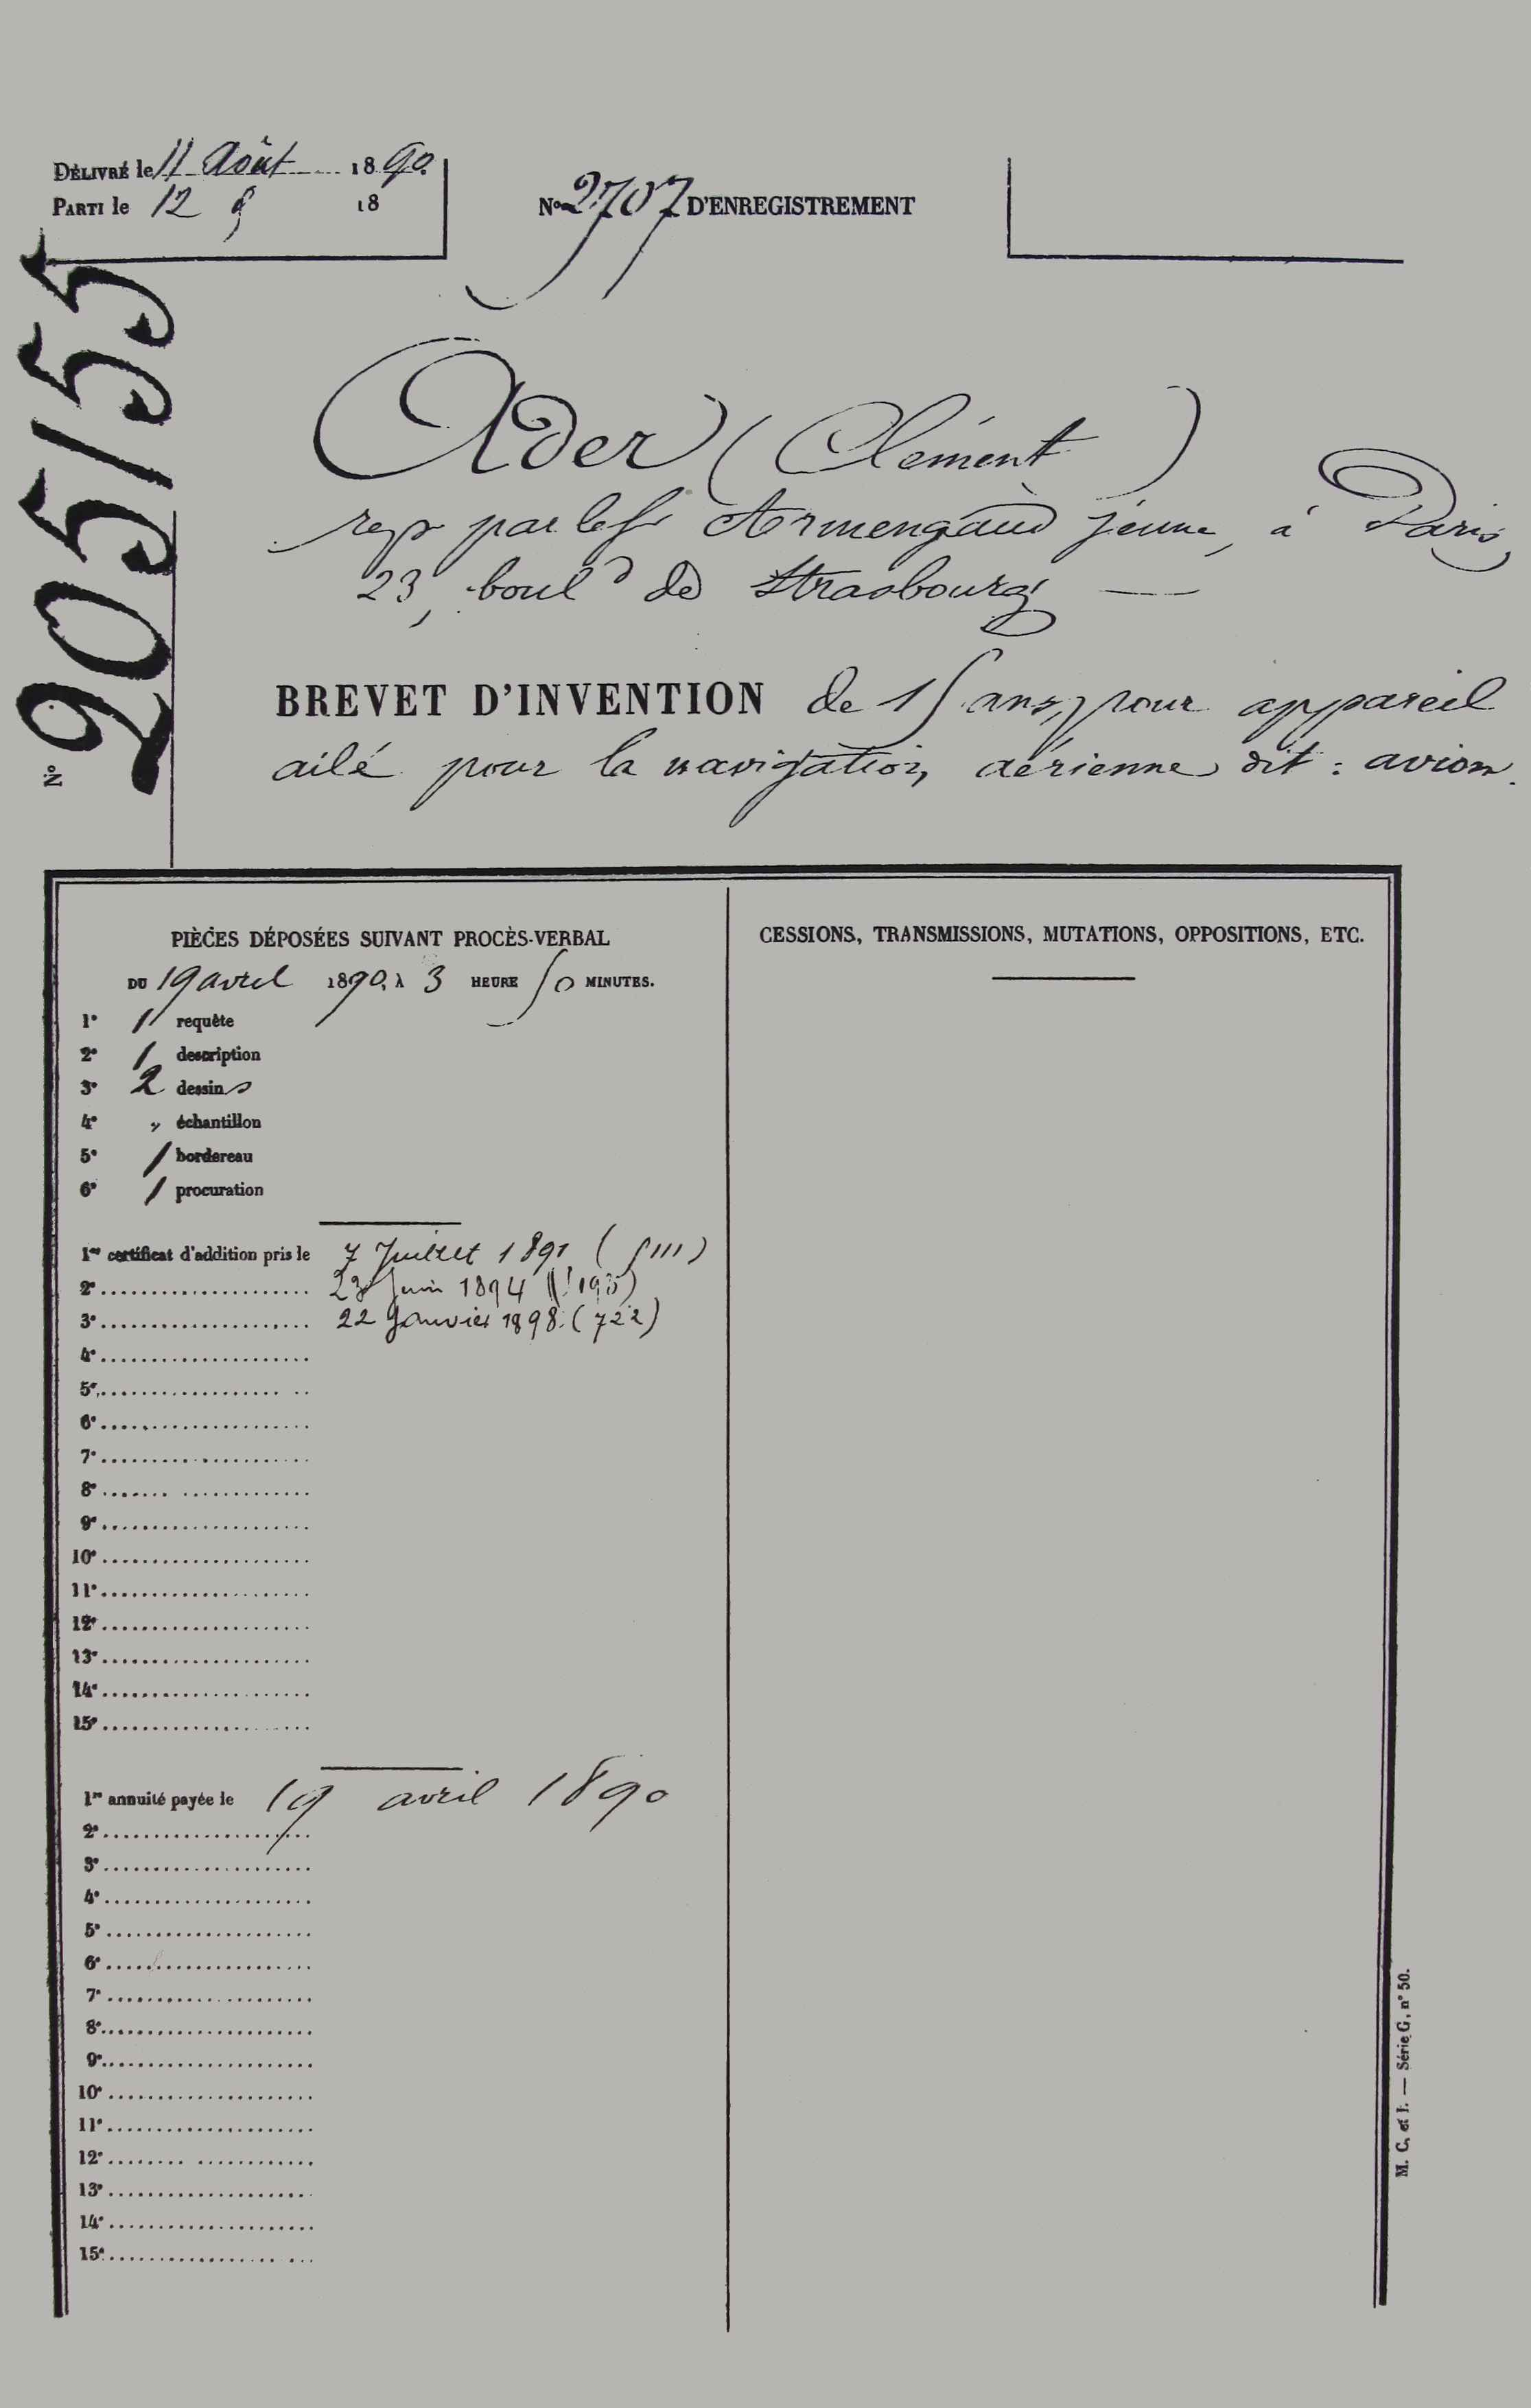 DÉLIVRÉ le 11 Août 1890.
PARTI le 12 8 18
N° 2707 D'ENREGISTREMENT
N° 205155
Ader (Clément)
rep par le Sr Armengaud jeune, à Paris,
23, bould de Strasbourg —
BREVET D'INVENTION de 15 ans, pour appareil
ailé pour la navigation aérienne dit : avion.
PIÈCES DÉPOSÉES SUIVANT PROCÈS-VERBAL
DU 19 avril 1890, À 3 HEURE 50 MINUTES.
1° 1 requête
2° 1 description
3° 2 dessins
4° " échantillon
5° 1 bordereau
6° 1 procuration
1er certificat d'addition pris le 7 Juillet 1891 (5111)
2e 1894
3e 22 Janvier 1898. (722)
4e
5e
6e
7e
8e
9e
10e
11e
12e
13e
14e
15e
1re annuité payée le 19 avril 1890
2e
3e
4e
5e
6e
7e
8e
9e
10e
11e
12e
13e
14e
15e
CESSIONS, TRANSMISSIONS, MUTATIONS, OPPOSITIONS, ETC.
M. C. et I. — Série G, n° 50.